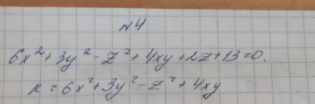 №4
6x² + 3y² - z² + 4xy + 2z + 13 = 0.
r = 6x² + 3y² - z² + 4xy